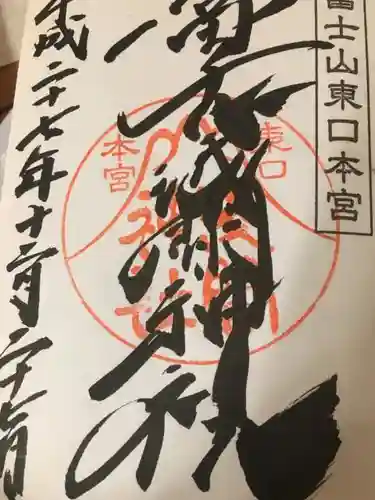 冨士山東口本宮
東口
本宮
浅間神社
平成二十七年十二月二十